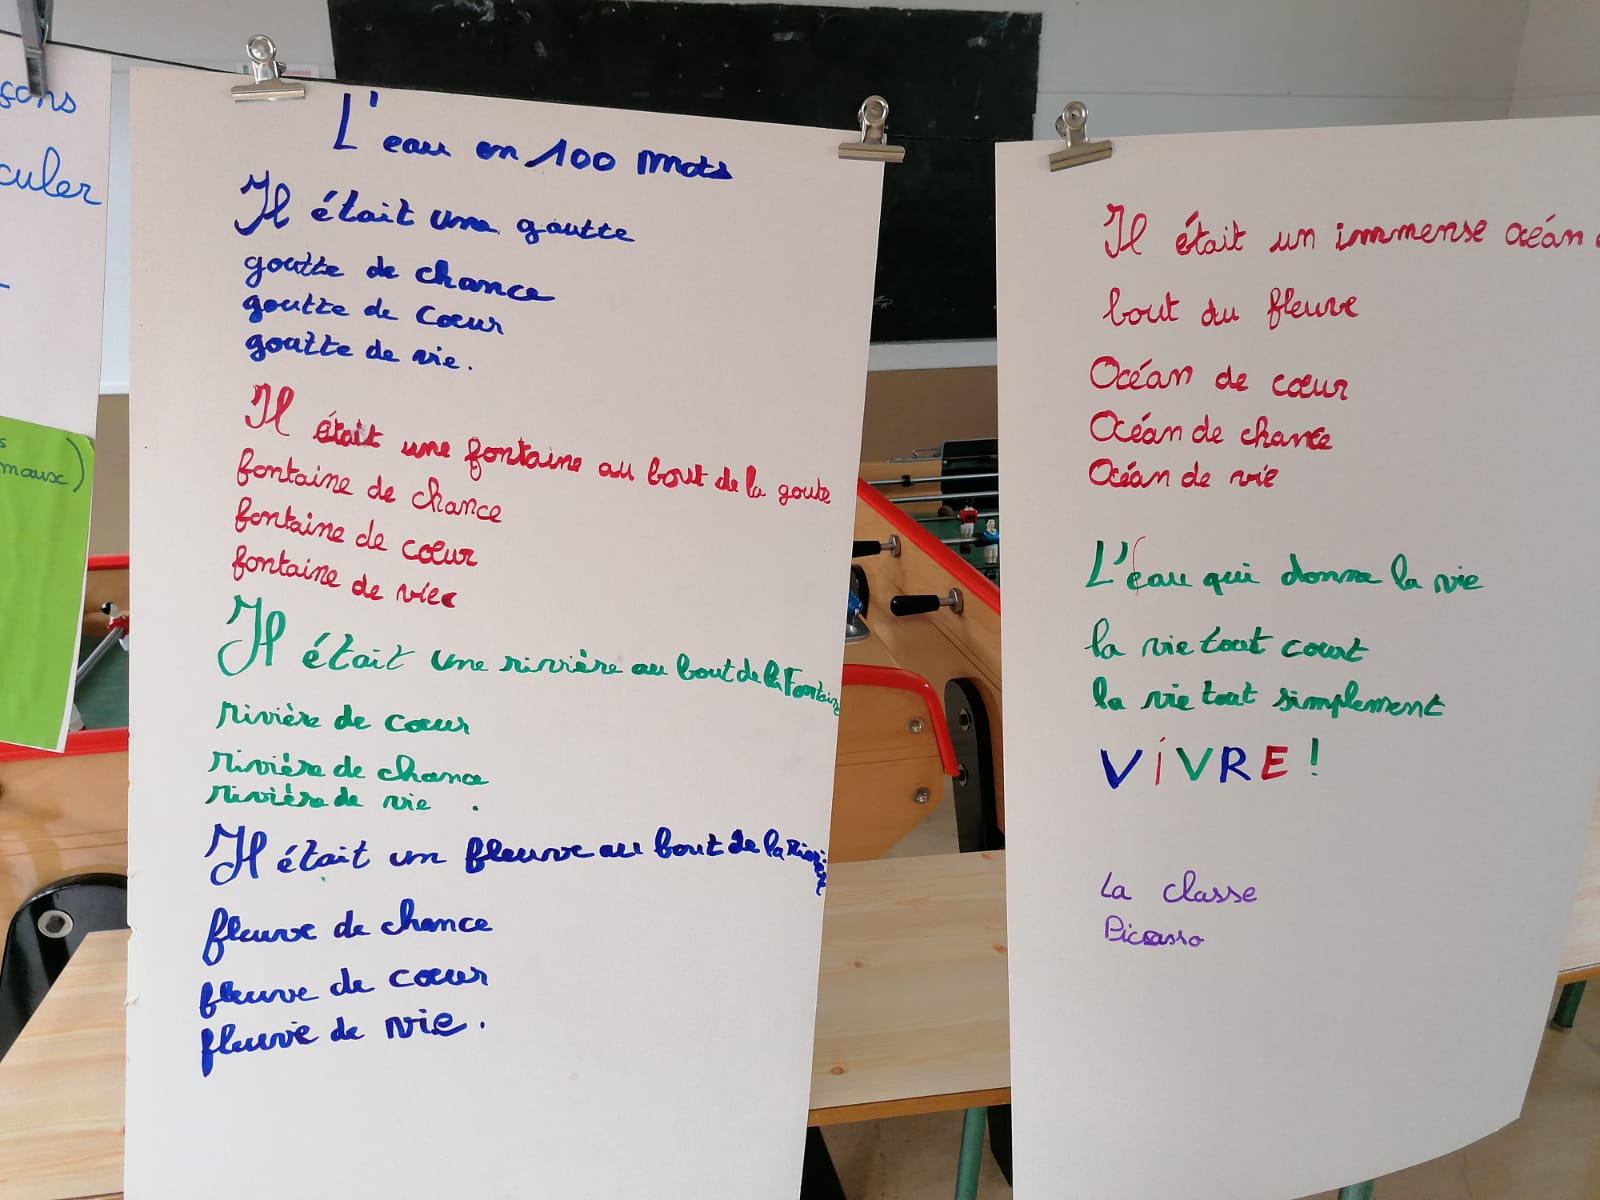 çons
culer
maux)
L'eau en 100 mots
Il était une goutte
goutte de chance
goutte de cœur
goutte de vie.
Il était une fontaine au bout de la goute
fontaine de chance
fontaine de cœur
fontaine de vie
Il était une rivière au bout de la Fontaine
rivière de cœur
rivière de chance
rivière de vie .
Il était un fleuve au bout de la rivière
fleuve de chance
fleuve de cœur
fleuve de vie.
Il était un immense océan
bout du fleuve
Océan de cœur
Océan de chance
Océan de vie
L'eau qui donne la vie
la vie tout court
la vie tout simplement
VIVRE !
La classe
Picasso